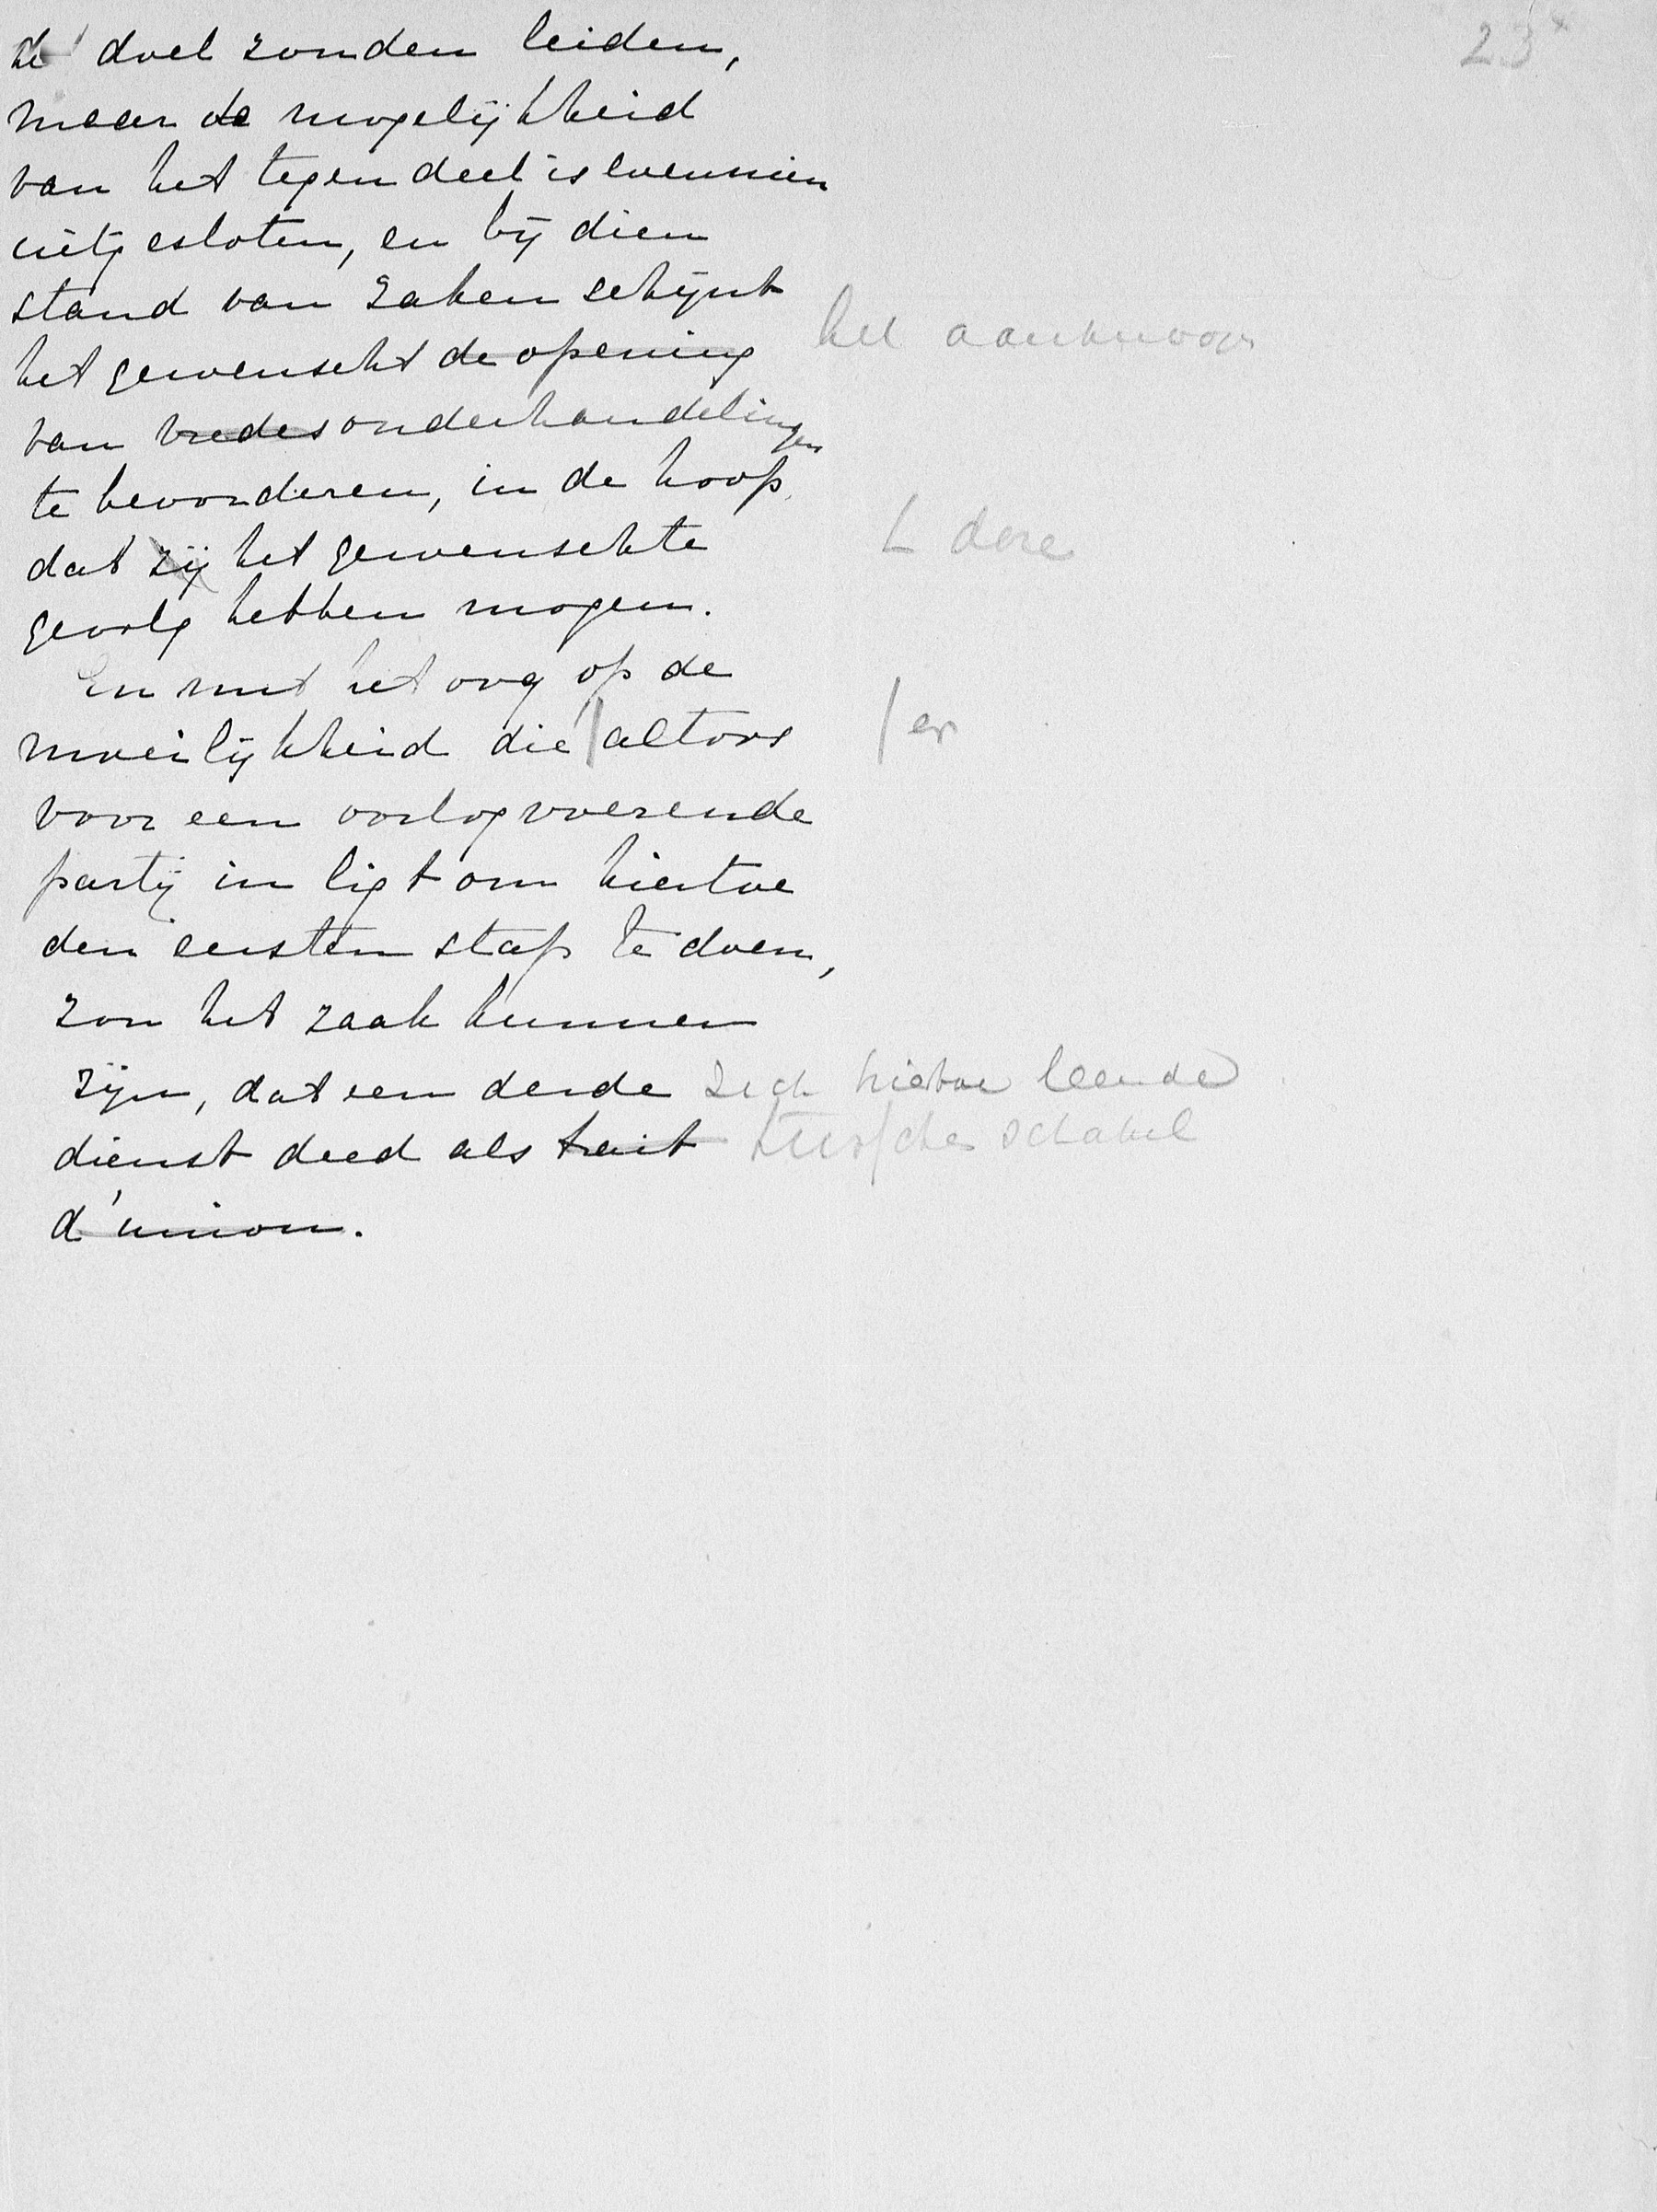 23
dit doel zouden leiden,
maar de mogelijkheid
van het tegendeel is evenmin
uitgesloten, en bij dien
stand van zaken schijnt
het gewenscht de opening het aanknoopen
van vredesonderhandelingen
te bevorderen, in de hoop
dat zij het gewenschte deze
gevolg hebben mogen.
En met het oog op de
moeilijkheid die altoos er
voor een oorlogvoerende
partij in ligt om hiertoe
den eersten stap te doen,
zou het zaak kunnen
zijn, dat een derde zich hiertoe leende
dienst deed als trait tusschenschakel
d'union.